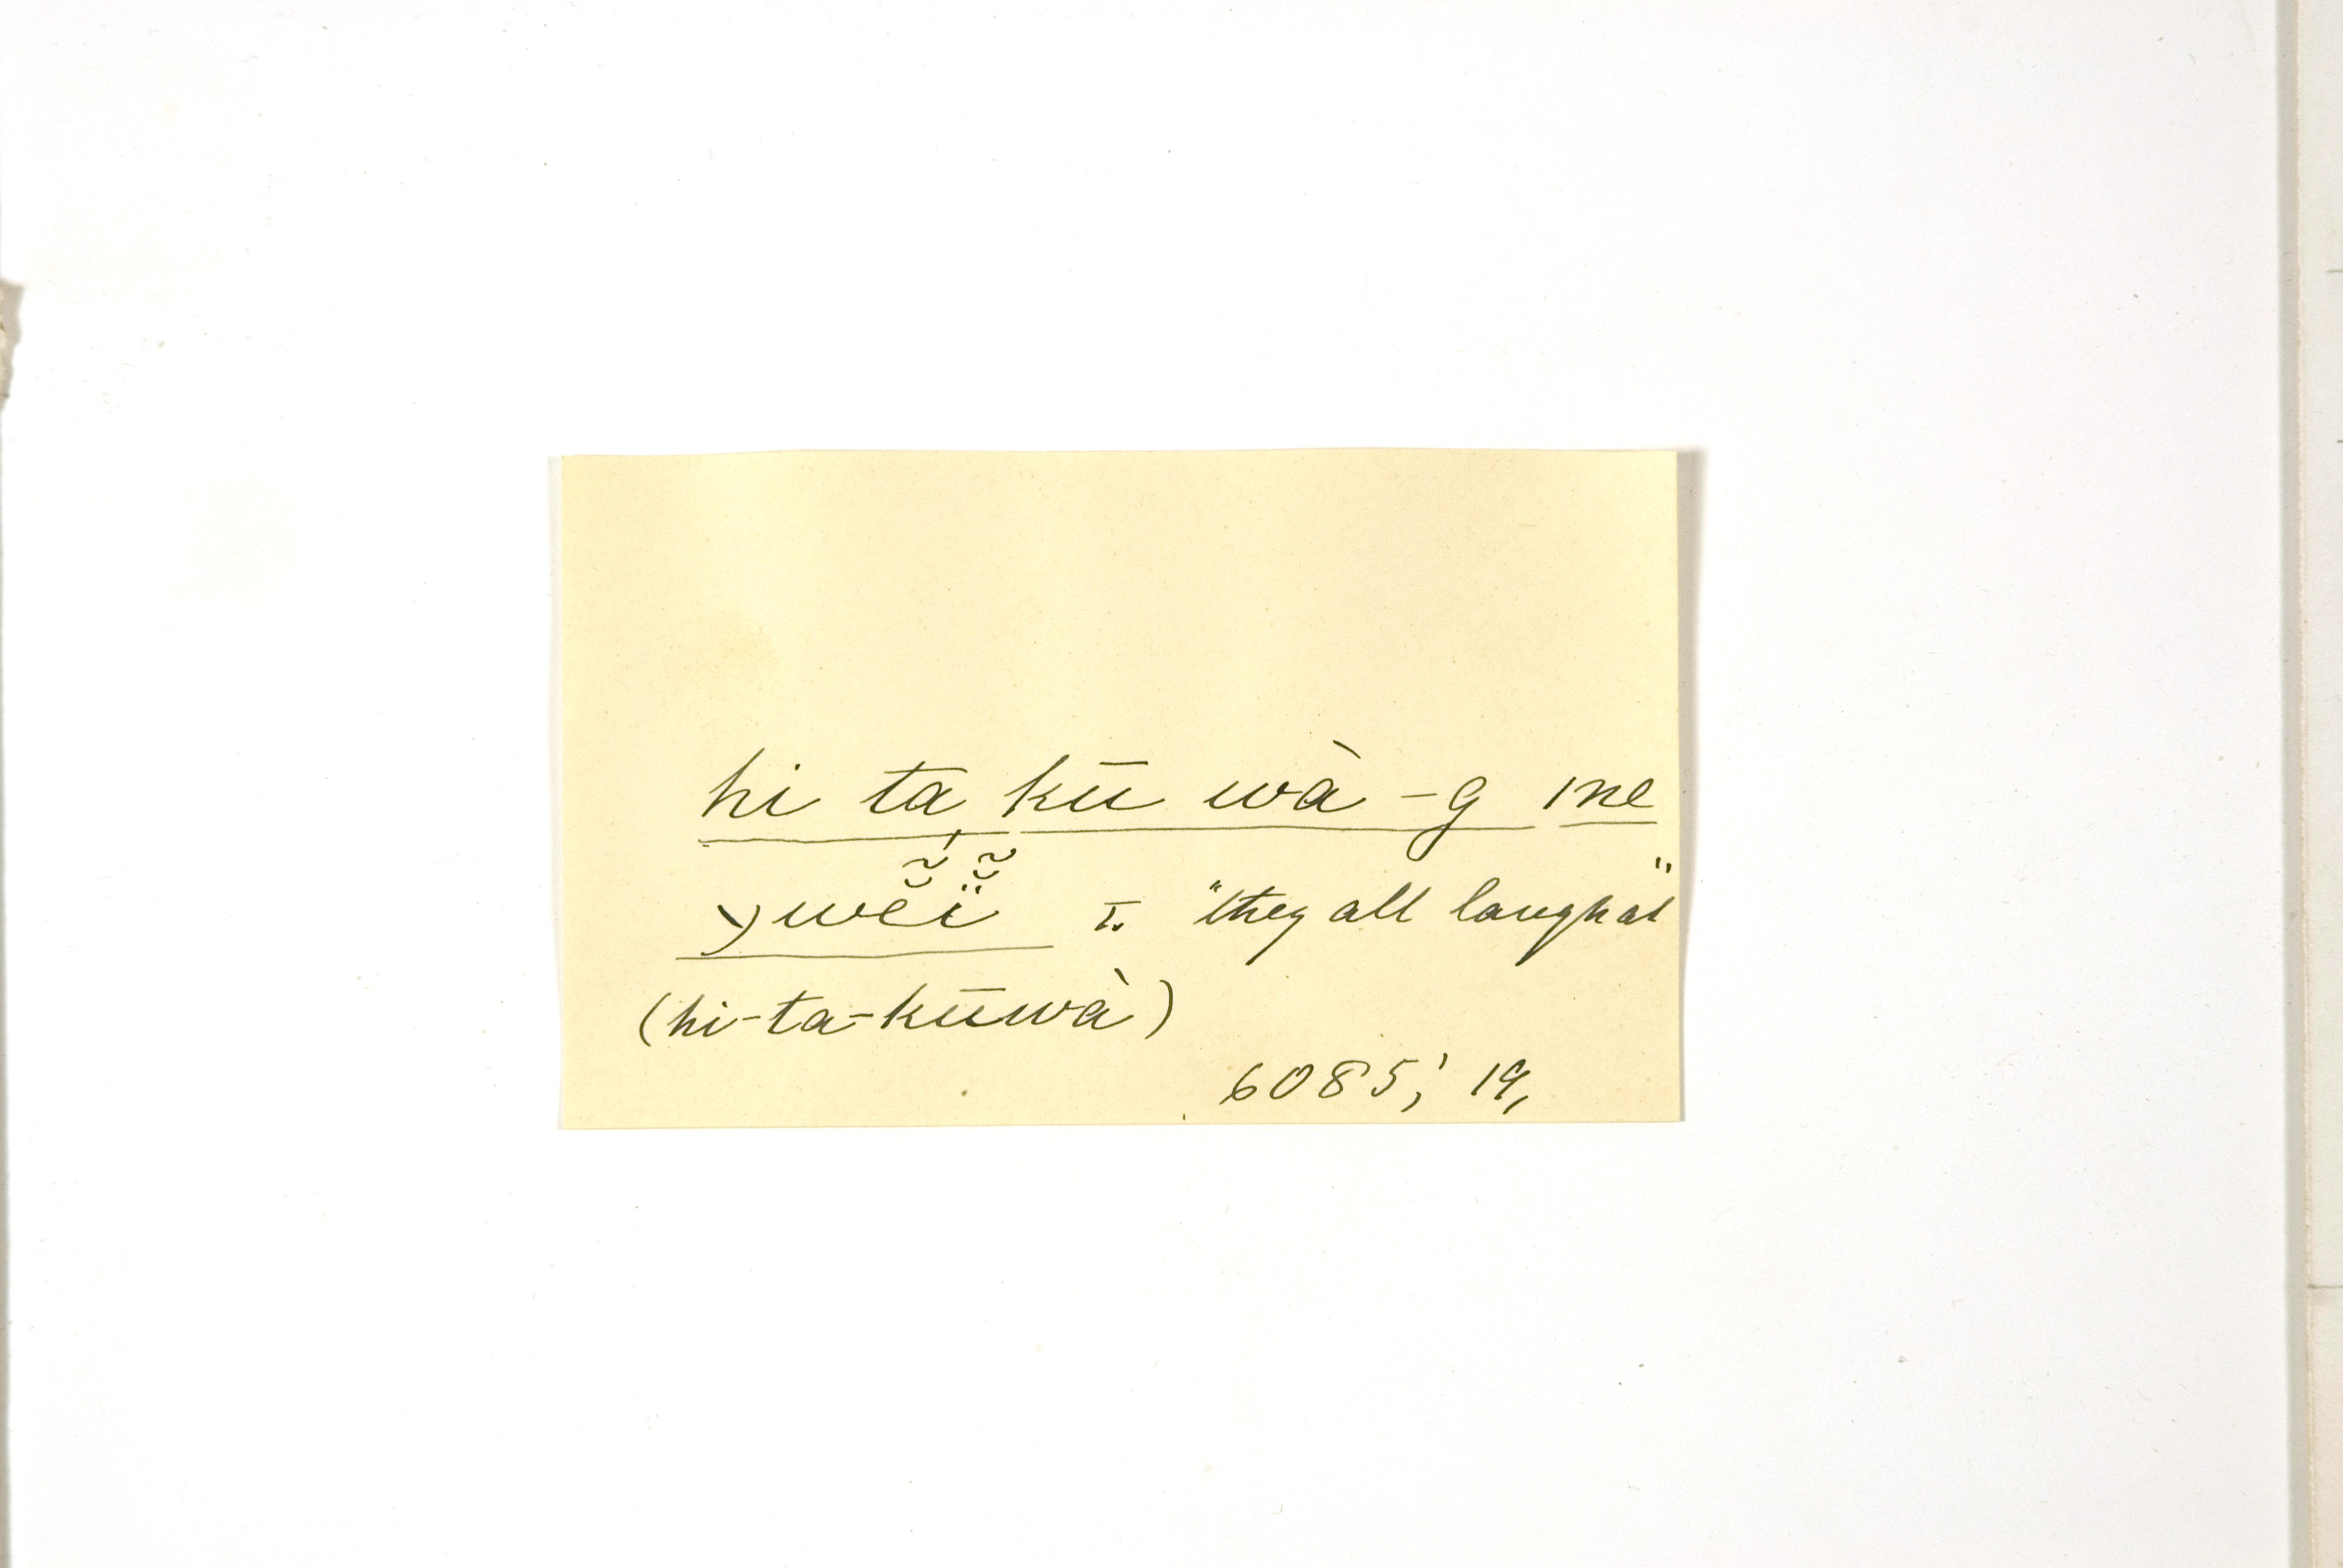 hi ta kū wà -g ine
ywĕ̃ĭ̃ = "they all laugh at"
(hi-ta-kūwà)
6085; 19,